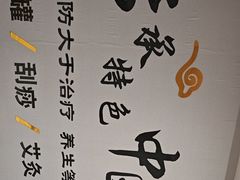 中
承特色
防大于治疗 养生等
罐/刮痧/艾灸